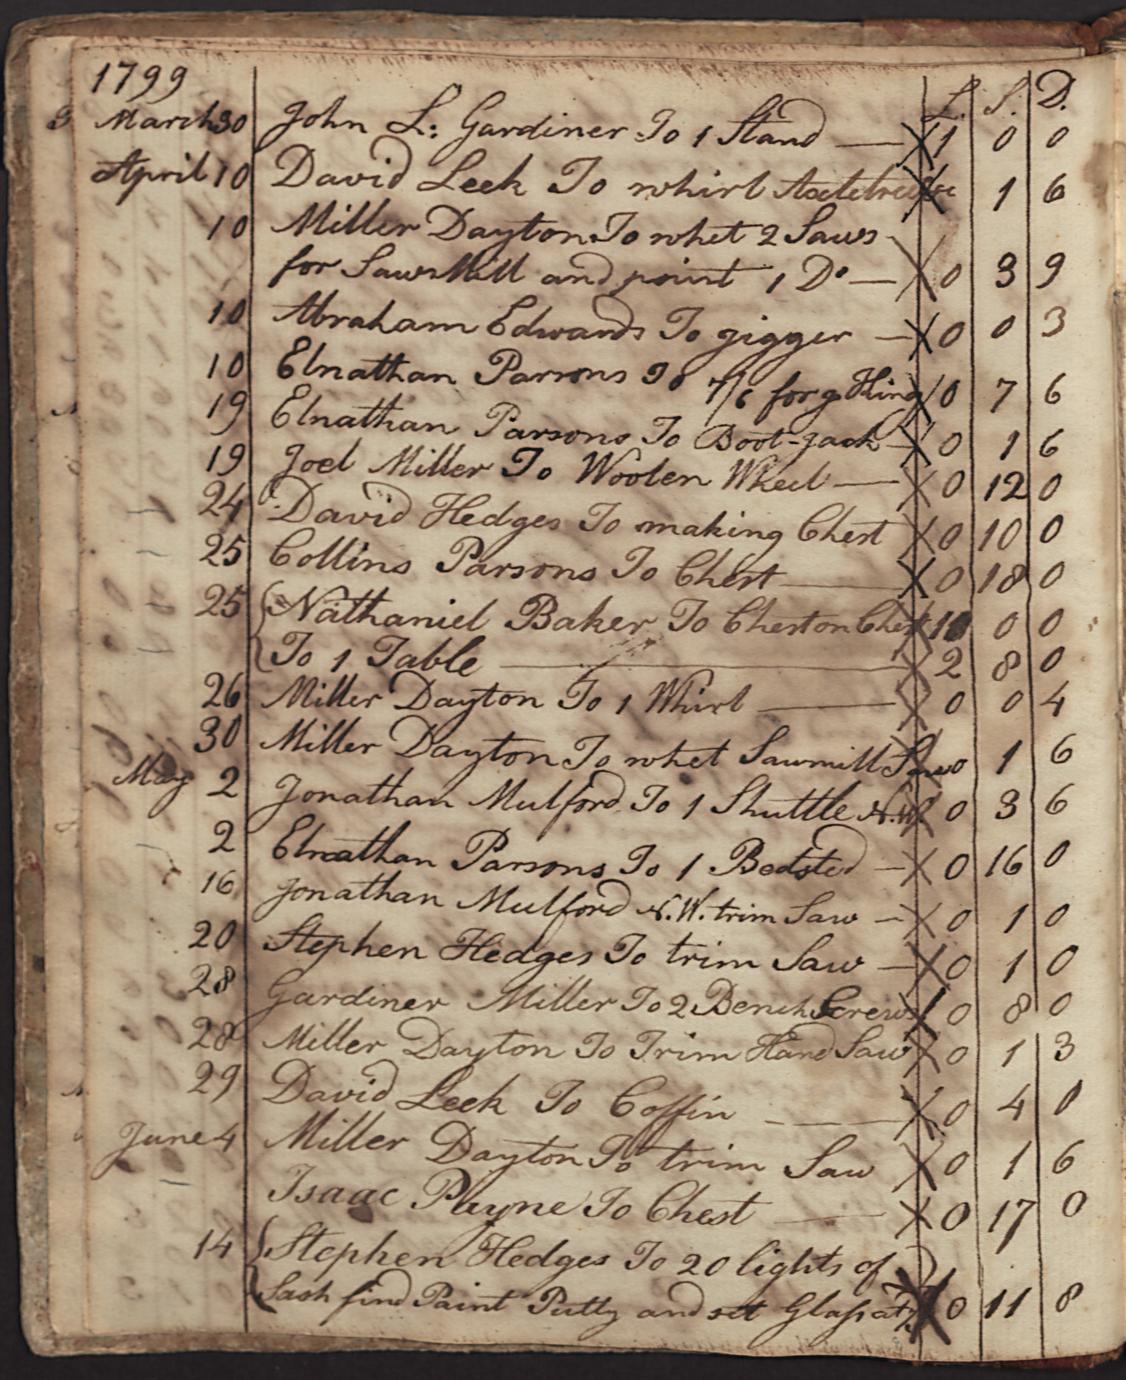 1799
L. S. D.
March 30 John L: Gardiner To 1 Stand — X 1 0 0
April 10 David Leek To whirl X 1 6
10 Miller Dayton To whet 2 Saws
for Saw Mill and point 1 Do — X 0 3 9
10 Abraham Edwards To gigger — X 0 0 3
10 Elnathan Parsons 7/6 for X 0 7 6
19 Elnathan Parsons To Boot-jack X 0 1 6
19 Joel Miller To Woolen Wheel — X 0 12 0
24 David Hedges To making Chest X 0 10 0
25 Collins Parsons To Chest — X 0 18 0
25 Nathaniel Baker To Chest on Chest 0 0
To 1 Table — X 2 8 0
26 Miller Dayton To 1 Whirl — X 0 0 4
30 Miller Dayton To whet Sawmill Saw X 0 1 6
May 2 Jonathan Mulford To 1 Shuttle N.W. X 0 3 6
2 Elnathan Parsons To 1 Bedsted — X 0 16 0
16 Jonathan Mulford N.W. trim Saw — X 0 1 0
20 Stephen Hedges To trim Saw — X 0 1 0
28 Gardiner Miller To 2 Bench Screws X 0 8 0
28 Miller Dayton To Trim Hand Saw X 0 1 3
29 David Leek To Coffin — X 0 4 0
June 4 Miller Dayton To trim Saw X 0 1 6
Isaac Payne To Chest — X 0 17 0
14 Stephen Hedges To 20 lights of
Sash find Paint Putty and set Glass X 0 11 8